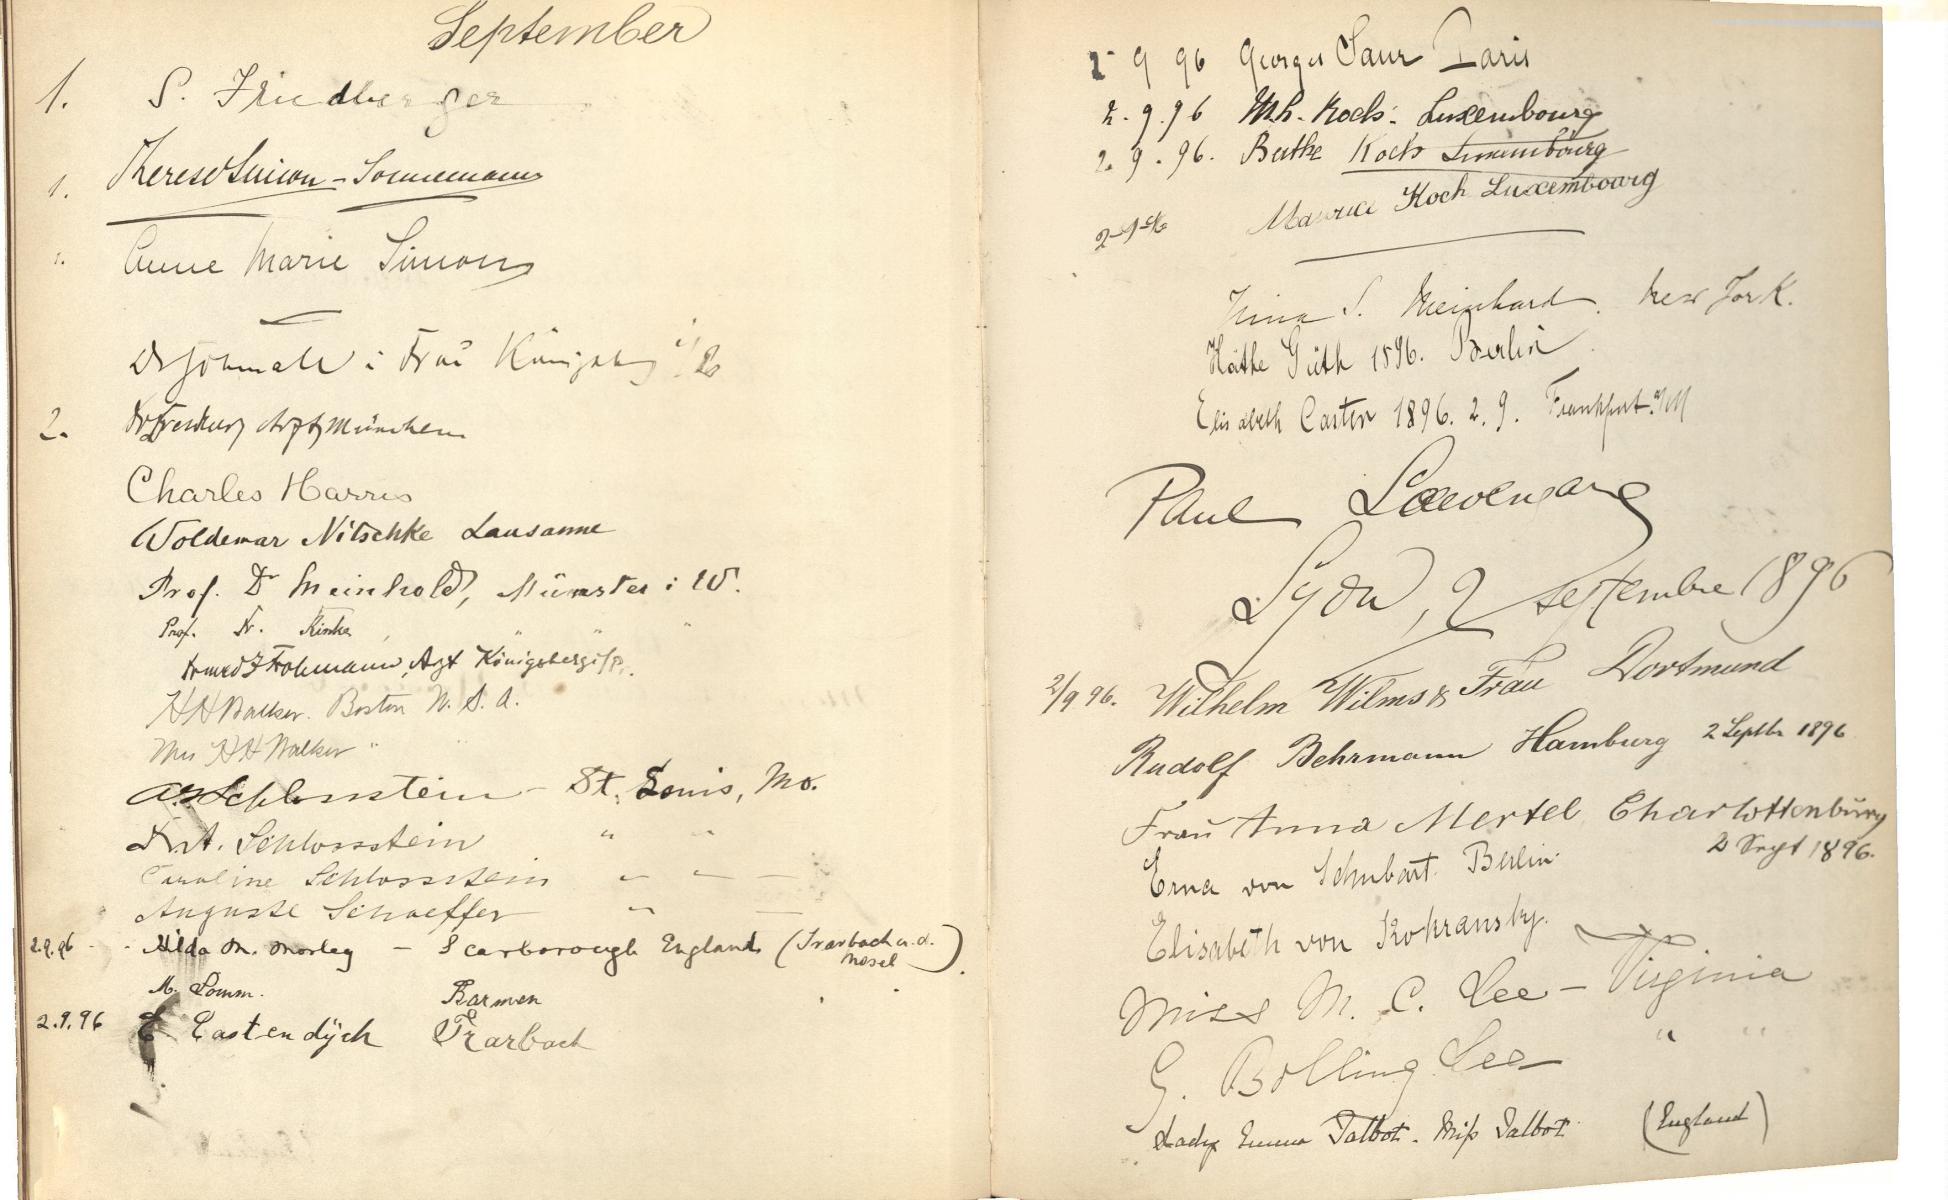 September
1. S. Friedberger
1. Therese Simon-Sonnemann
1. Anne Marie Simon
Dr i Frau
2. München
Charles Harris
Woldemar Nitschke Lausanne
Prof. Dr Meinhold, Münster i W.
Prof. Dr. " " "
Königsberg i/Pr.
HH Walker. Boston U. S. A.
Mrs HH Walker " "
A. Schlossstein - St. Louis, Mo.
A. Schlossstein " "
Caroline Schlossstein " " —
Auguste Schaeffer " —
2.9.96 - - Hilda M. Morley - Scarborough England (Trarbach a. d.
Mosel)
M. Lomm. Barmen
2.9.96 E Eastendÿck Trarbach
2 9 96 Georges Saur Paris
2.9.96 Mh. Koch. Luxembourg
2.9.96. Berthe Koch Luxembourg
Maurice Koch Luxembourg
S. Meinhard. New York.
Käthe Güth 1896. Berlin
Elisabeth Caster 1896. 2. 9. Frankfurt a/M
Paul Loewengard
Lyon, 2 septembre 1896
2/9 96. Wilhelm Wilms & Frau Dortmund
Rudolf Behrmann Hamburg 2 Septbr 1896
Frau Anna Mertel Charlottenburg
2 Sept 1896.
Erna von Schubart. Berlin.
Elisabeth von
Miss M. C. Lee - Virginia
G. Bolling Lee " "
Lady Emma Talbot. Miss Talbot (England)